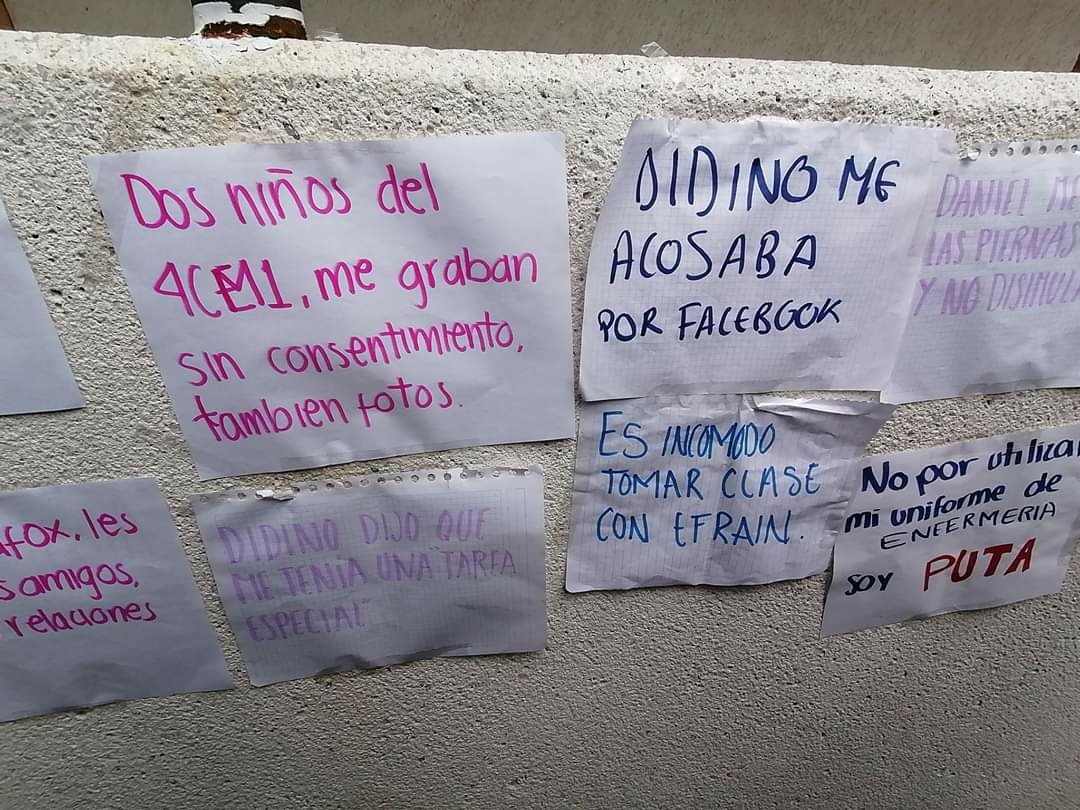 Dos niños del
4CEM1, me graban
sin consentimiento,
tambien fotos.
DIDINO ME
ACOSABA
POR FACEBOOK
DANIEL ME
LAS PIERNAS
Y NO DISIMULA
fox, les
amigos,
relaciones
DIDINO DIJO QUE
ME TENÍA UNA "TAREA
ESPECIAL"
ES INCOMODO
TOMAR CLASE
CON EFRAIN.
No por utilizar
mi uniforme de
ENFERMERIA
SOY PUTA